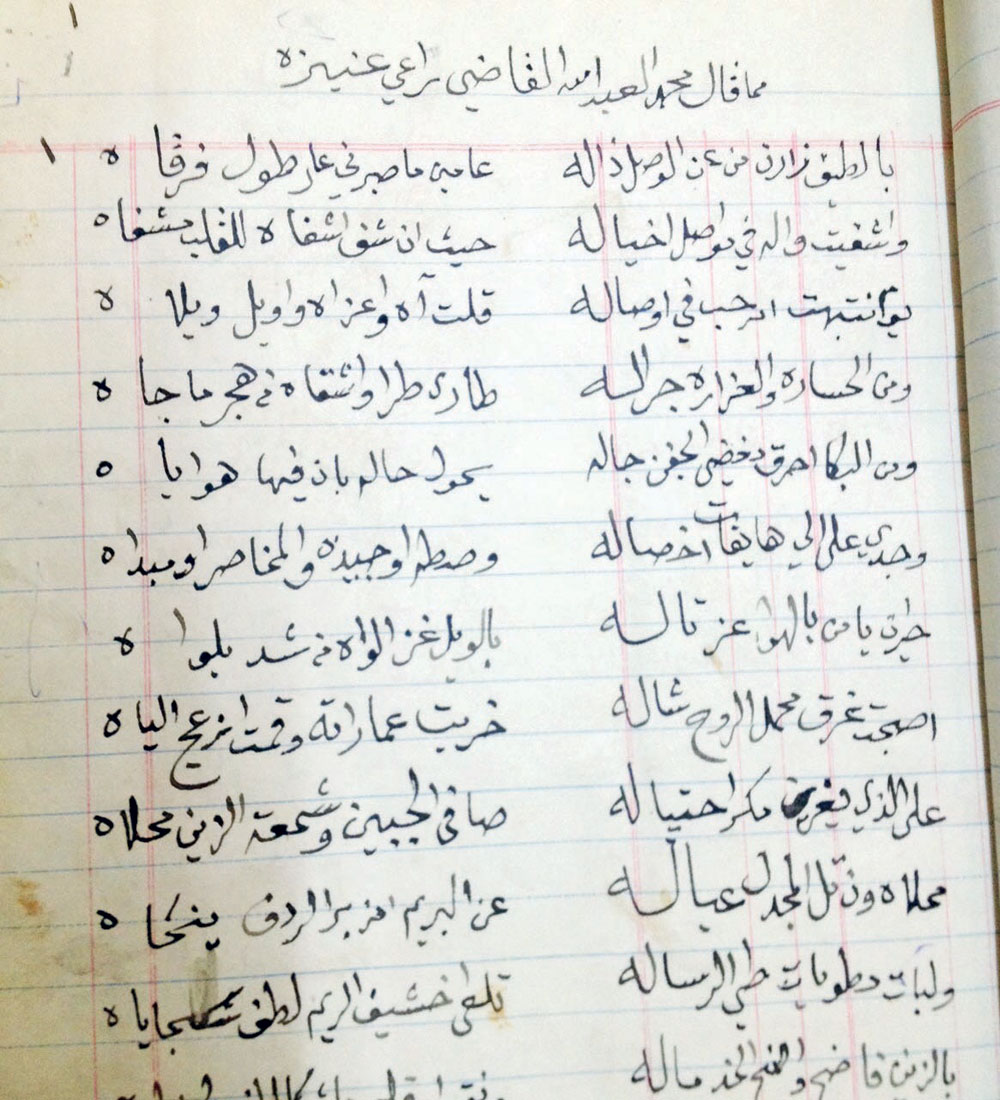 مما قال محمد العبدالله القاضي راعي عنيزه
بالطيف زارن من عن الوصل ذاله عامين ما صبرني على طول فرقاه
واشفيت واله في تواصل اخياله حيث ان شفى اشفاه للقلب مشفاه
يوم انتبهت رحب في اوصاله قلت آه واعزاه واويل ويلاه
ومن الحساره والعزاره جراله طاري طرا واشقاه في هجر ماجاه
ومن البكا احرق دغضي الجفن جاله يحول حاله باذ فيها هواياه
وجدي على الي هايفات اخصاله وصطه اوجيده والمخاصر ومبداه
حرت يا من بالهوا عز تاله بالويل عز الواه من شد بلواه
اصبحت غرق محمل الروح شاله خربت عماراته وقمت ازعج الياه
على الذي مكر احتياله صافي الجبين وشمعة الزين محلاه
محلاه ون تل المجدل عباله عن البريم امزبر الردف ينحاه
ولبات مطويات طي الرساله تلعى خشيف الريم لطف سجاياه
بالزين فاضح الخد ماله